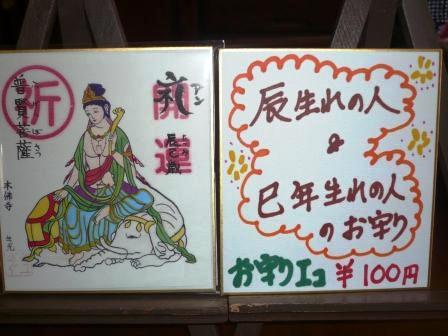 祈
普賢菩薩
開運
アン
辰生れの人
&
巳年生れの人
のお守り
お守りエコ ¥100円